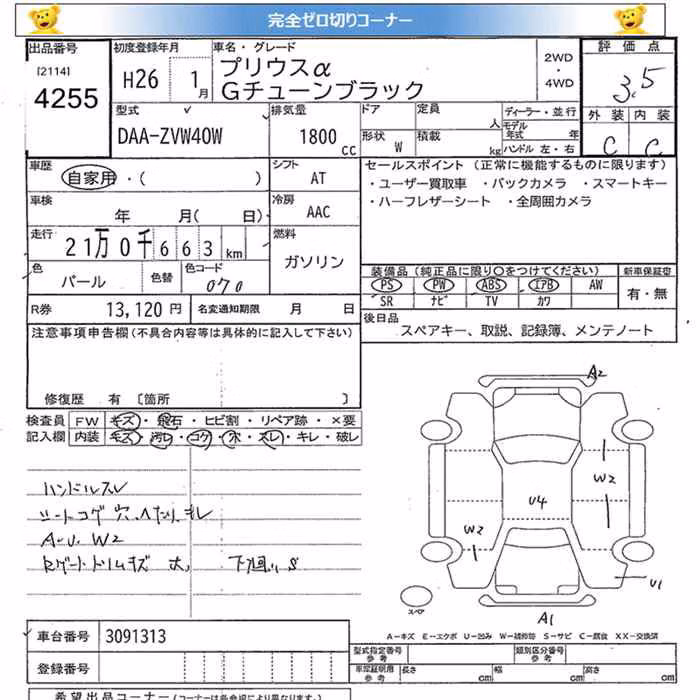 完全ゼロ切りコーナー
出品番号
[2114]
4255
初度登録年月
H26 1月
車名・グレード
プリウスα
Gチューンブラック
2WD
・
4WD
評価点
3.5
外装 内装
C C
型式
DAA-ZVW40W
排気量
1800 cc
ドア
形状 W
定員
人
積載
kg
ディーラー・並行
モデル
年式 年
ハンドル 左・右
車歴
自家用・( )
シフト
AT
車検
年 月( 日)
冷房
AAC
走行
21万0千663km
燃料
ガソリン
色
パール
色替
色コード
070
R券 13,120 円
名変通知期限 月 日
セールスポイント (正常に機能するものに限ります)
・ユーザー買取車 ・バックカメラ ・スマートキー
・ハーフレザーシート ・全周囲カメラ
装備品(純正品に限り○をつけてください)
新車保証書
PS PW ABS エアB AW
SR ナビ TV カワ
有・無
後日品
スペアキー、取説、記録簿、メンテノート
注意事項申告欄(不具合内容等は具体的に記入して下さい)
修復歴 有 [箇所 ]
検査員
記入欄
FW キズ・飛石・ヒビ割・リペア跡・×要
内装 キズ・汚レ・コゲ・木・スレ・キレ・破レ
ハンドルスレ
シートコゲ穴、ヘタリ、キレ
A・U、W2
Rゲートトリムキズ 大、 下廻りS
A2
W2
U4
W2
U1
A1
スペア
A-キズ E-エクボ U-凹み W-補修跡 S-サビ C-腐食 XX-交換済
車台番号 3091313
登録番号
型式指定番号
参考
類別区分番号
参考
車定証明用
参考
長さ cm
幅 cm
高さ cm
希望出品コーナー(コーナーは各会場により異なります)